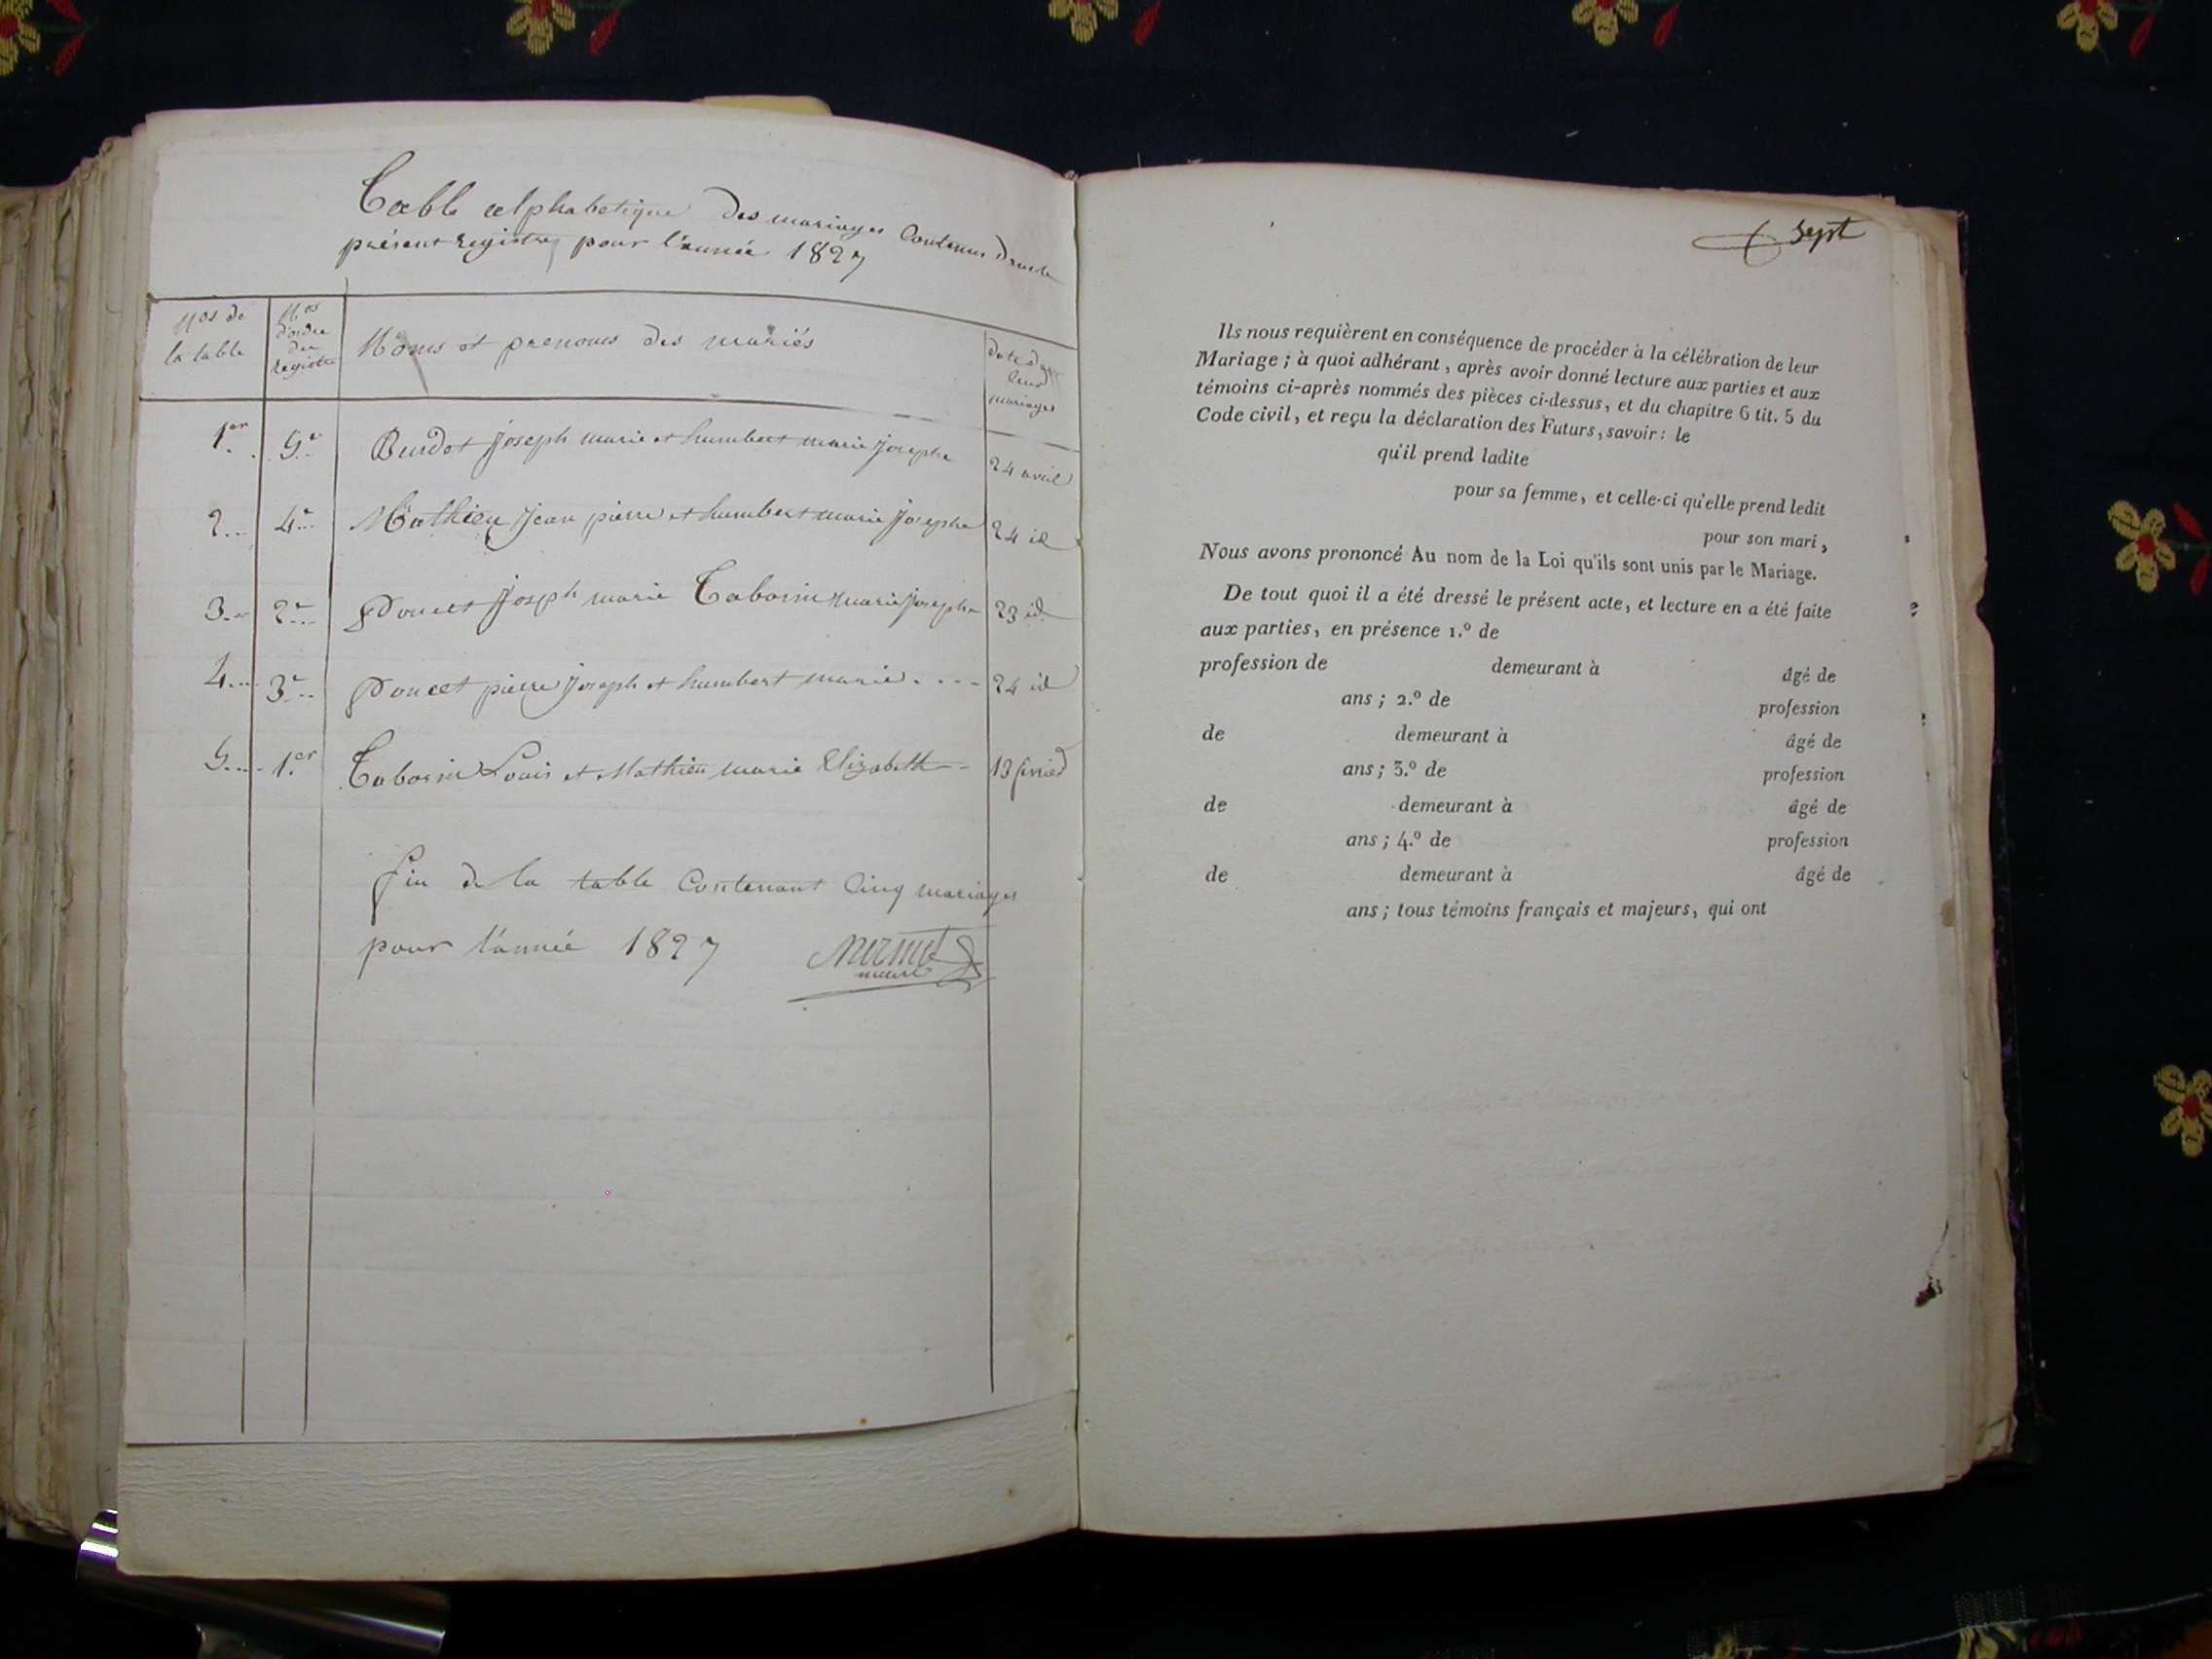 Table alphabetique des mariages Contenus dans le
présent registre pour l'année 1827
Nos de
la table
Nos
d'ordre
du
registre
Noms et prenoms des mariés
date de
leurs
mariages
1er 5e Burdet joseph marie et humbert marie josephe 24 avril
2 4e Mathieu jean pierre et humbert marie josephe 24 id
3 2e Poncet joseph marie Taborin marie josephe 23 id
4 3e Poncet pierre joseph et humbert marie 24 id
5 1er Taborin Louis et Mathieu marie Elizabeth 13 février
fin de la table Contenant Cinq mariages
pour l'année 1827
maire
sept
Ils nous requièrent en conséquence de procéder à la célébration de leur
Mariage ; à quoi adhérant, après avoir donné lecture aux parties et aux
témoins ci-après nommés des pièces ci-dessus, et du chapitre 6 tit. 5 du
Code civil, et reçu la déclaration des Futurs, savoir : le
qu'il prend ladite
pour sa femme, et celle-ci qu'elle prend ledit
pour son mari,
Nous avons prononcé Au nom de la Loi qu'ils sont unis par le Mariage.
De tout quoi il a été dressé le présent acte, et lecture en a été faite
aux parties, en présence 1.º de
profession de demeurant à âgé de
ans ; 2.º de profession
de demeurant à âgé de
ans ; 3.º de profession
de demeurant à âgé de
ans ; 4.º de profession
de demeurant à âgé de
ans ; tous témoins français et majeurs, qui ont